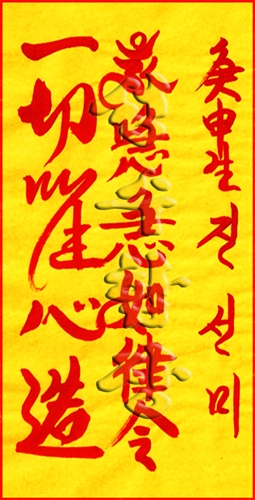 庚申生 전 선 미
急急如律令
一切唯心造